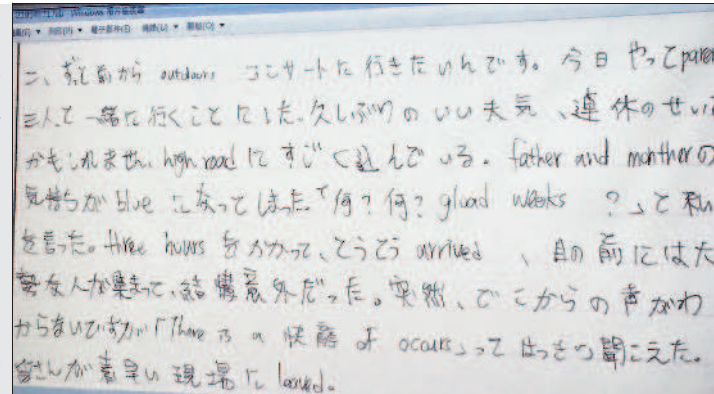 二、ずっと前から outdours コンサートに行きたいんです。今日 やって paren
三人で一緒に行くことにした。久しぶりのいい天気、連休のせい
かもしれません、high road にすごく込んでいる。father and monther の
気持ちが blue になってしまった。「何？何？ gload weeks ？」と私
を言った。three hours をかかって、とうとう arrived 、目の前には大
勢な人が集まって、結構意外だった。突然、どこからの声がわ
からないですが「There is a 快 of occurs」って はっきり聞こえた。
皆さんが素早い現場に leaved.